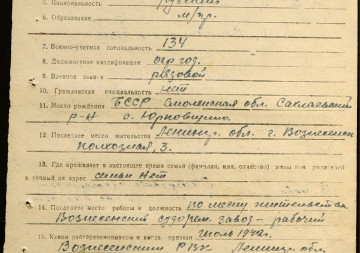 5. Национальность русский
6. Образование м/гр.
7. Военно-учетная специальность 134
8. Должностная квалификация огр. год.
9. Военное звание рядовой
10. Гражданская специальность нет
11. Место рождения БССР Смоленская обл.
р-н с.
12. Последнее место жительства Ленингр. обл. г. Вознесенье
3.
13. Где проживает в настоящее время семья (фамилия, имя, отчество) жены или родителей
и точный их адрес семьи нет
14. Последнее место работы и должность по месту жительства
Вознесенский судорем. завод - рабочий
15. Каким райвоенкоматом и когда призван июль 1942г.
Вознесенским РВК Ленингр. обл.